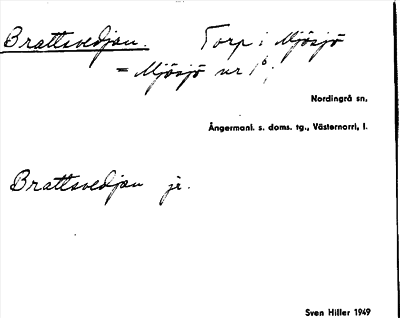 Brattsvedjan. Torp i Mjösjö
= Mjösjö nr 1
Nordingrå sn,
Ångermanl. s. doms. tg., Västernorrl, l.
Brattsvedjan
Sven Hiller 1949